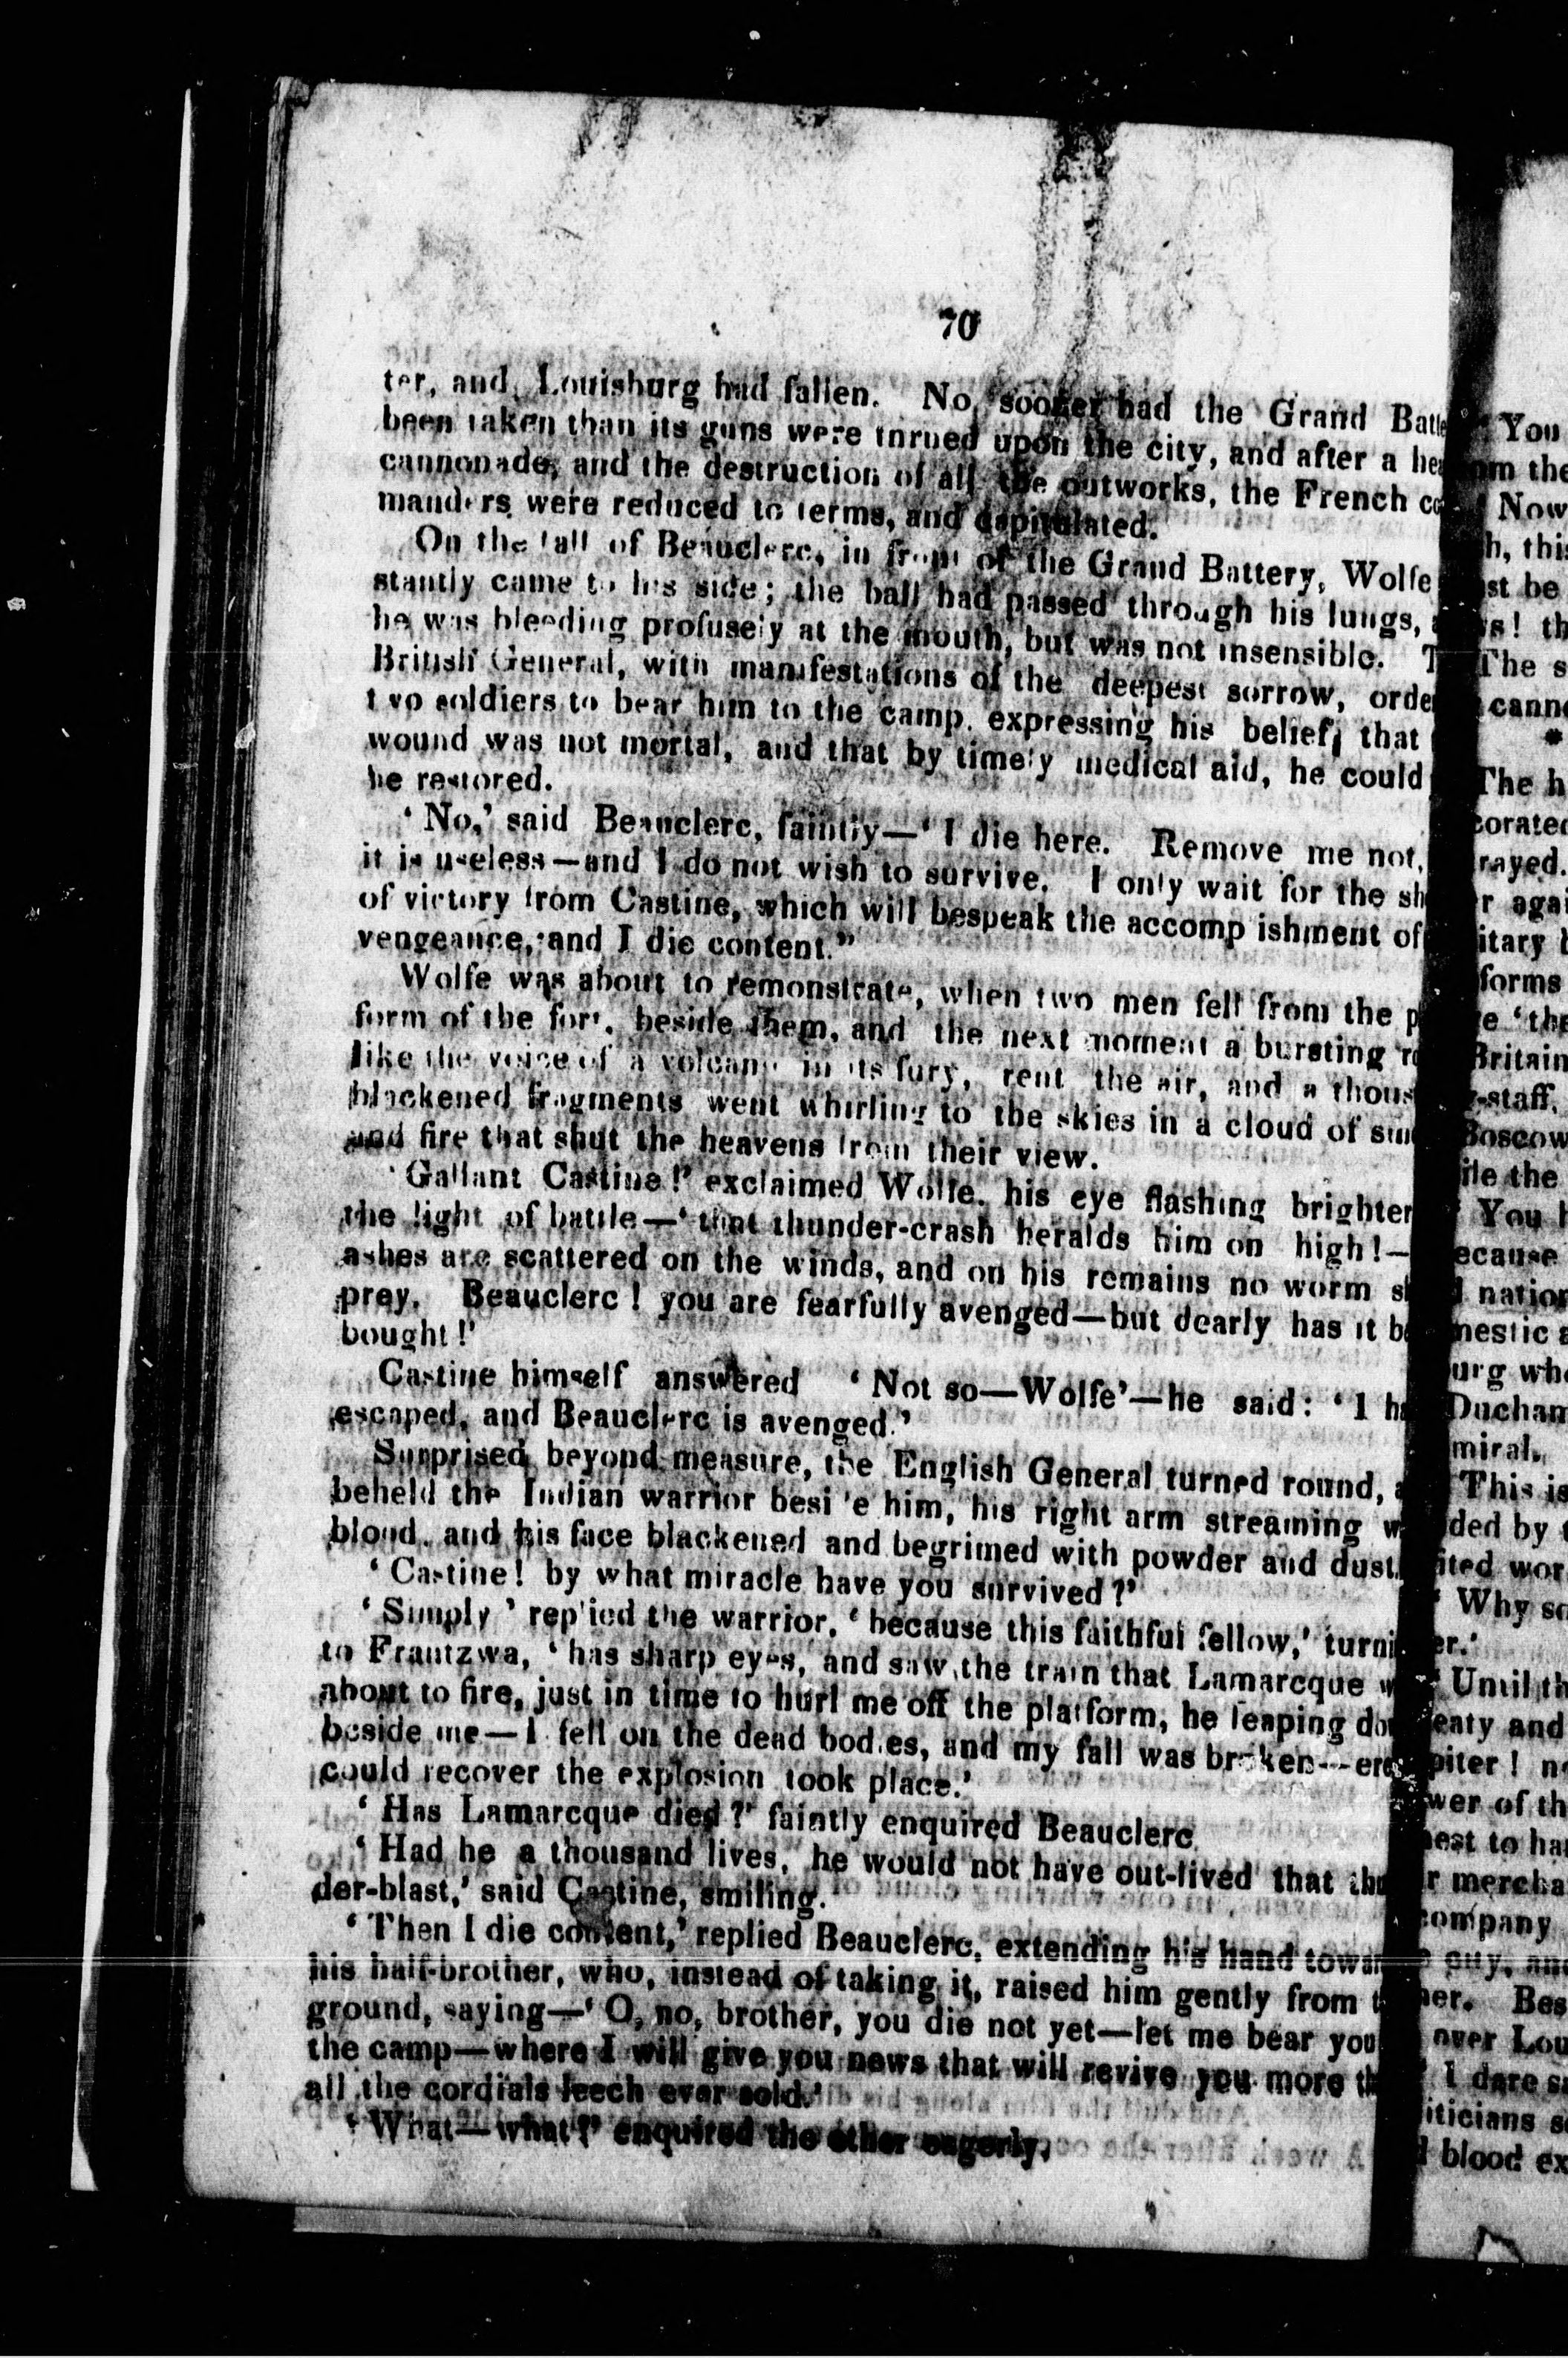 70
ter, and, Louisburg had fallen. No sooner had the Grand Batte
been taken than its guns were tnrned upon the city, and after a hea
cannonade, and the destruction of all the outworks, the French co
manders were reduced to terms, and capitulated.
On the fall of Beauclerc, in front of the Grand Battery, Wolfe
stantly came to his side; the ball had passed through his lungs,
he was bleeding profusely at the mouth, but was not insensible. T
British General, with manifestations of the deepest sorrow, order
two soldiers to bear him to the camp, expressing his belief, that
wound was not mortal, and that by timely medical aid, he could
be restored.
‘ No,’ said Beauclerc, faintly—‘ I die here. Remove me not,
it is useless—and I do not wish to survive. I only wait for the sh
of victory from Castine, which will bespeak the accomp ishment of
vengeance, and I die content.”
Wolfe was about to remonstrate, when two men fell from the p
form of the fort, beside them, and the next moment a bursting ro
like the voice of a volcano in its fury, rent the air, and a thous
blackened fragments went whirling to the skies in a cloud of smo
and fire that shut the heavens from their view.
‘ Gallant Castine !’ exclaimed Wolfe, his eye flashing brighter
the light of battle—‘ that thunder-crash heralds him on high!—
ashes are scattered on the winds, and on his remains no worm s
prey. Beauclerc ! you are fearfully avenged—but dearly has it b
bought !’
Castine himself answered ‘ Not so—Wolfe’—he said: ‘ I ha
escaped, and Beauclerc is avenged.’
Surprised beyond measure, the English General turned round, a
beheld the Indian warrior besi e him, his right arm streaming w
blood, and his face blackened and begrimed with powder and dust.
‘ Castine! by what miracle have you survived ?’
‘ Simply ’ replied the warrior, ‘ because this faithful fellow,’ turni
to Frantzwa, ‘ has sharp eyes, and saw the train that Lamarcque w
about to fire, just in time to hurl me off the platform, he leaping do
beside me—I fell on the dead bodies, and my fall was broken—ere
could recover the explosion took place.’
‘ Has Lamarcque died ?’ faintly enquired Beauclerc
‘ Had he a thousand lives, he would not have out-lived that thu
der-blast,’ said Castine, smiling.
‘ Then I die content,’ replied Beauclerc, extending his hand towar
his half-brother, who, instead of taking it, raised him gently from t
ground, saying—‘ O, no, brother, you die not yet—let me bear you
the camp—where I will give you news that will revive you more th
all the cordials leech ever sold.’
‘ What—what ?’ enquired the other eagerly,
You
om the
Now
h, this
st be
s! th
The s
cann
*
The h
corated
rayed.
r agai
itary
forms
e ‘the
Britain
-staff,
Boscow
ile the
You
ecause
nation
mestic a
urg who
Ducham
miral.
This is
ded by
ited wor
Why so
er.’
Until th
eaty and
piter ! n
wer of th
est to ha
r mercha
company
, and
her. Bes
over Lou
I dare s
iticians s
blood ex